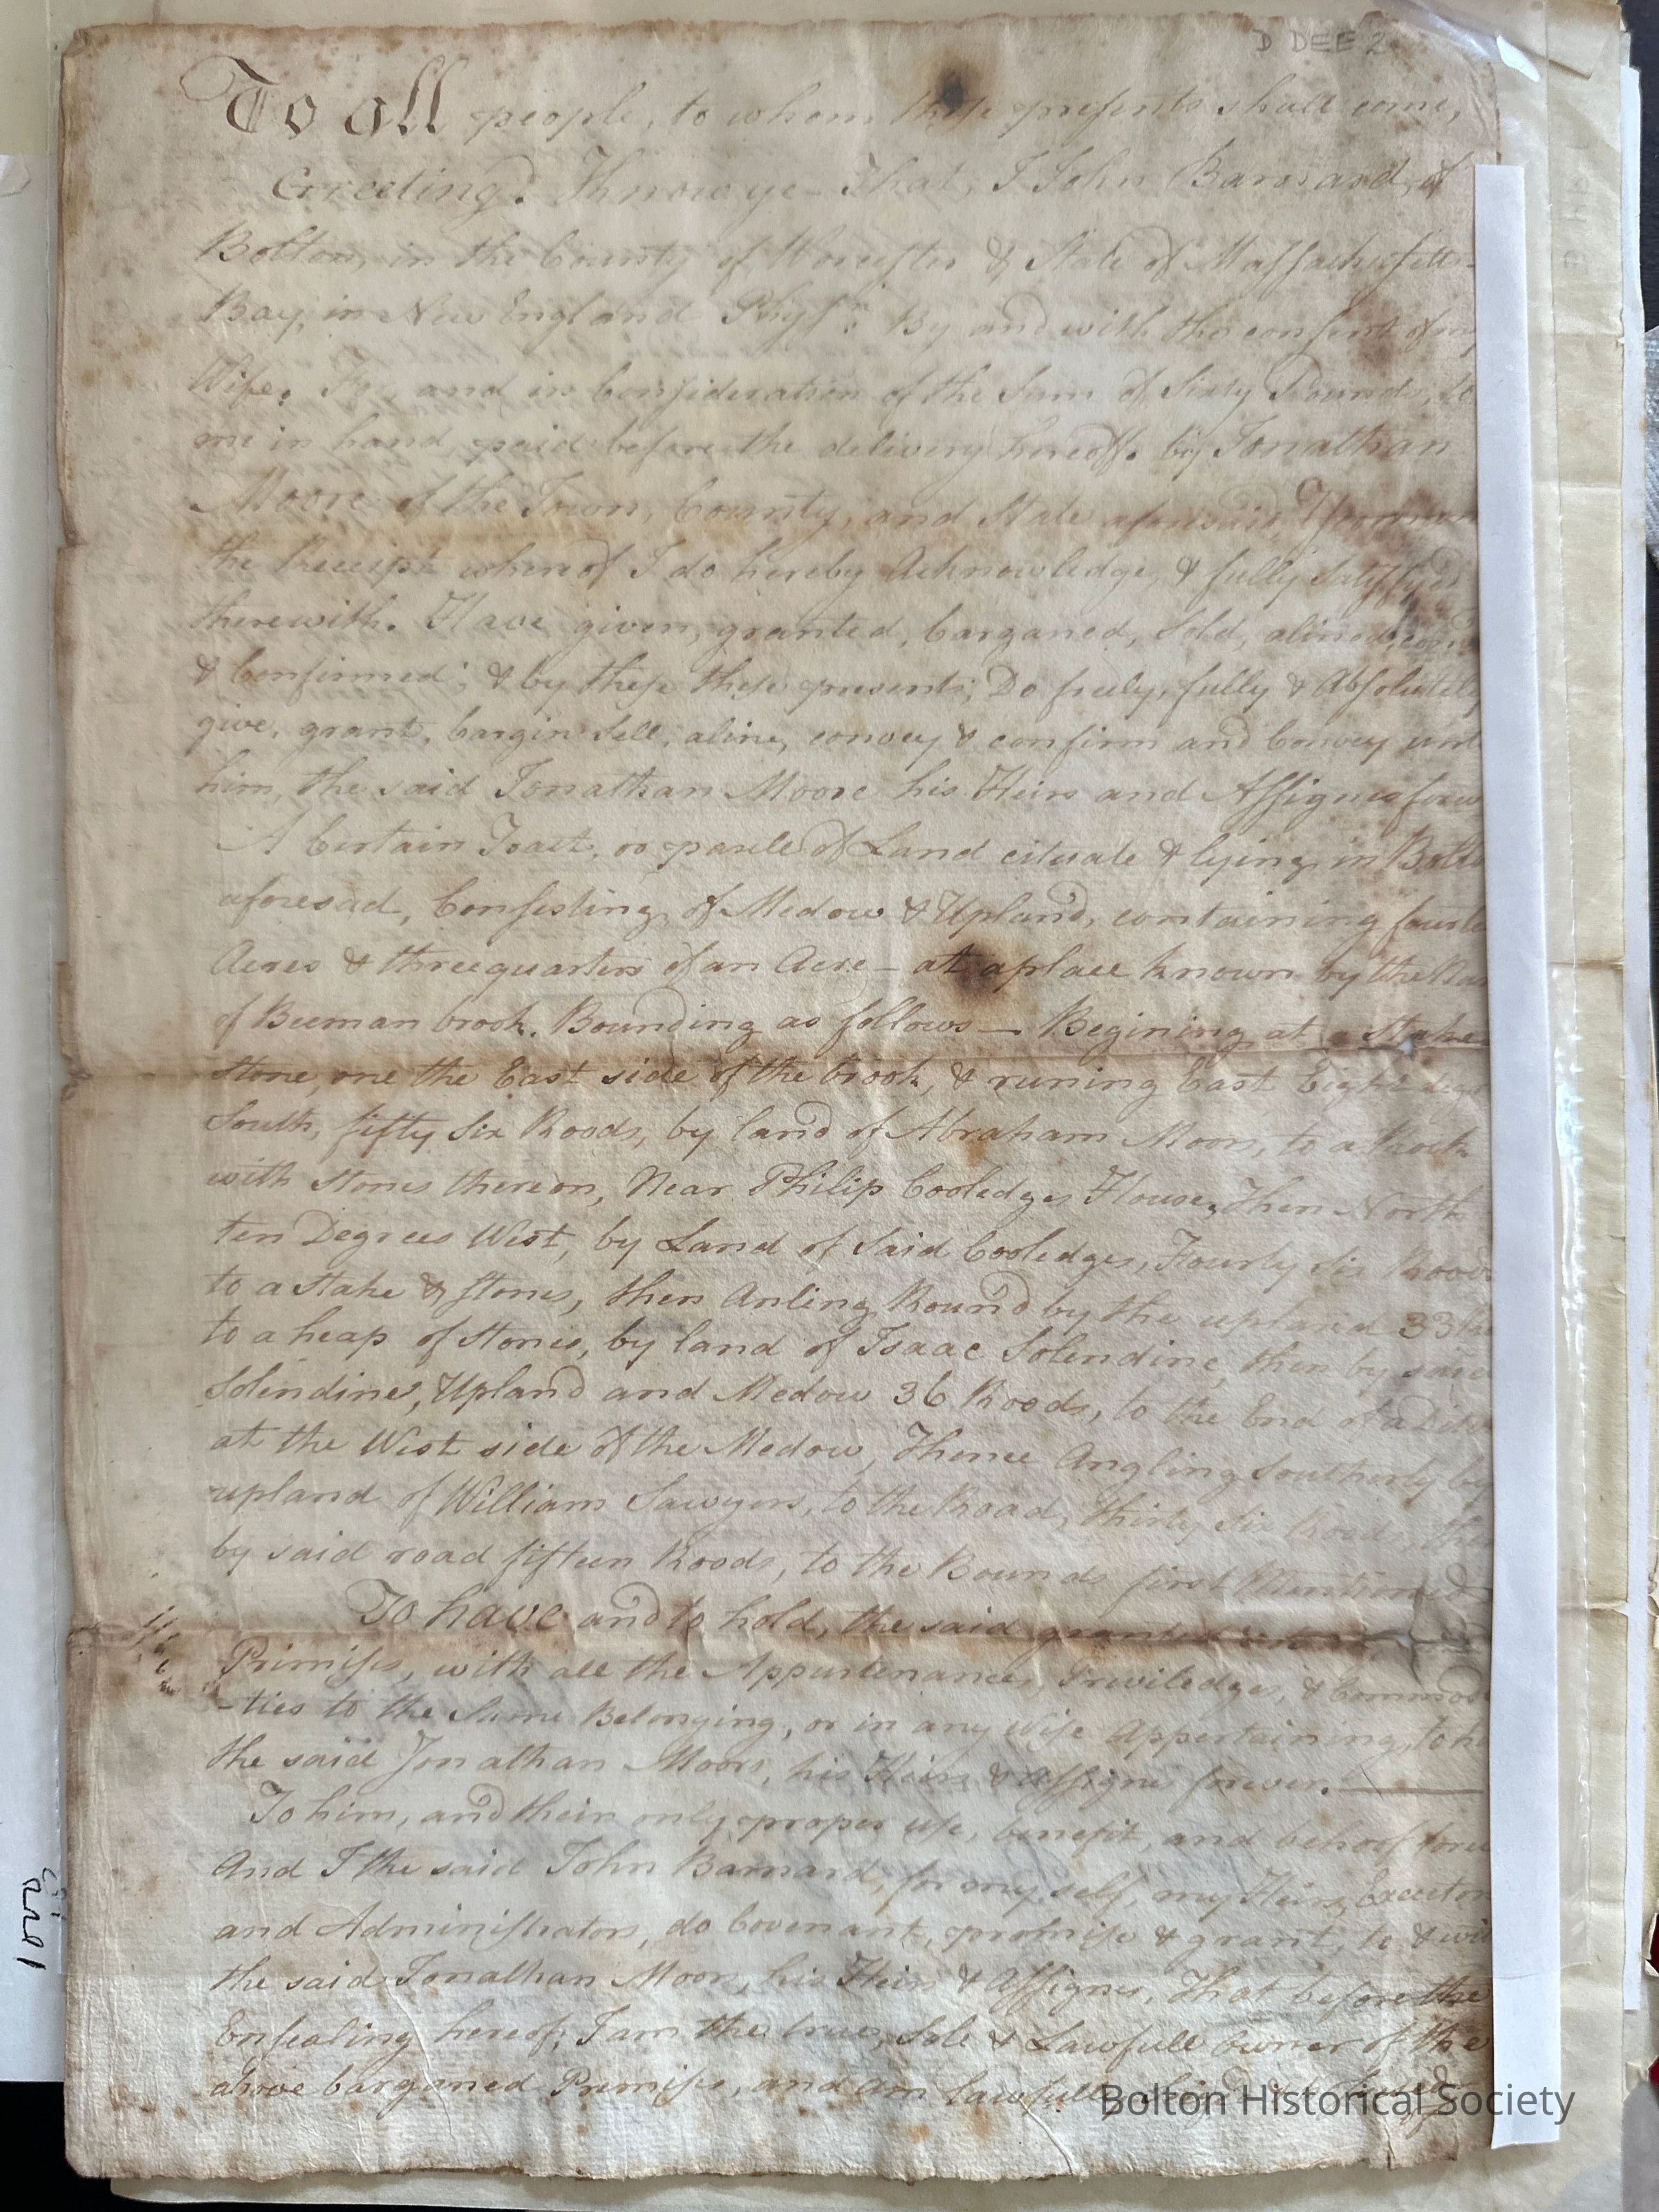 D DEE 2
To all people, to whom these presents shall come,
Greeting. Know ye - That, I John Barnard, of
Bolton, in the County of Worcester & State of Massachusetts-
Bay, in New England Physn: By and with the consent of my
Wife. For, and in Consideration of the Sum of Sixty Pounds, to
me in hand, paid before the delivery hereoff. by Jonathan
Moore of the Town, County, and State aforesaid, Yeoman
the Receipt whereof I do hereby Acknowledge, & fully Satisfyed
therewith. Have given, granted, barganed, Sold, alined,
& Confirmed; & by these these presents, Do freely, fully & Absolutely
give, grant, bargin Sell, aline, convey & confirm and Convey unt
him, the said Jonathan Moore his Heirs and Assignes
A Certain Tract, or parsle of Land cituate & lying in Bolto
aforesaid, Consisting of Medow & Upland, containing
Acres & threequarters of an Acre - at aplace known by the Na
of Beeman brook. Bounding as follows - Begining at a Stake
stone, one the East side of the brook, & runing East Eight deg
South, fifty Six Roods, by land of Abraham Moors, to a Rock
with stones thereon, Near Philip Cooledges House, Then North
ten Degrees West, by Land of Said Cooledges, Fourty Six Roods
to a Stake & Stones, then Anling Round by the upland 33
to a heap of Stones, by land of Isaac Solendine, then by said
Solendines, Upland and Medow 36 Roods, to the End of a
at the West side of the Medow, Thence Angling Southerly by
upland of William Sawyers, to the Road, thirty Six Roods, the
by said road fifteen Roods, to the Bounds first Mentioned
To have and to hold, the said granted
Primises, with all the Appurtenances, Priviledges, & Commod
-ties to the Same Belonging, or in any wise Appertaining, to h
the said Jonathan Moors, his Heirs & Assignes forever.
To him, and their only proper use, benefit, and behoof fore
And I the said John Barnard, for my self, my Heirs, Executor
and Administrators, do Covenant, promise & grant, to & wi
the said Jonathan Moors, his Heirs & Assignes, That before the
Ensealing hereof, I am the true, Sole & Lawfull owner of the
above barganed Primises, and am lawfully
Bolton Historical Society